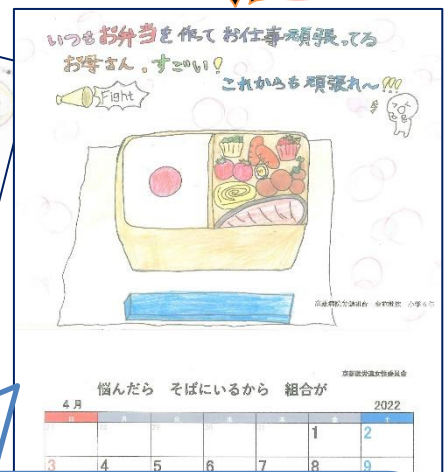 いつもお弁当を作ってお仕事頑張ってる
お母さん。すごい!
これからも頑張れ〜!!!
Fight
悩んだら そばにいるから 組合が
4月 2022
日 月 火 水 木 金 土
1 2
3 4 5 6 7 8 9